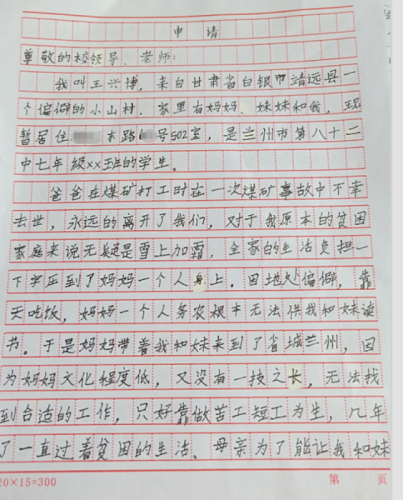 申请
尊敬的校领导、老师:
我叫王兴博,来自甘肃省白银市靖远县一
个偏僻的小山村。家里有妈妈、妹妹和我,现
暂居住 本路6 号502室,是兰州市第八十二
中七年级xx班的学生。
爸爸在煤矿打工时在一次煤矿事故中不幸
去世,永远的离开了我们,对于我原本的贫困
家庭来说无疑是雪上加霜,全家的生活负担一
下字压到了妈妈一个人身上。因地处偏僻,靠
天吃饭,妈妈一个人务农根本无法供我和妹读
书。于是妈妈带着我和妹来到了省城兰州,因
为妈妈文化程度低,又没有一技之长,无法找
到合适的工作,只好靠做苦工短工为生,几年
了一直过着贫困的生活。母亲为了能让我和妹
20×15=300 第 页